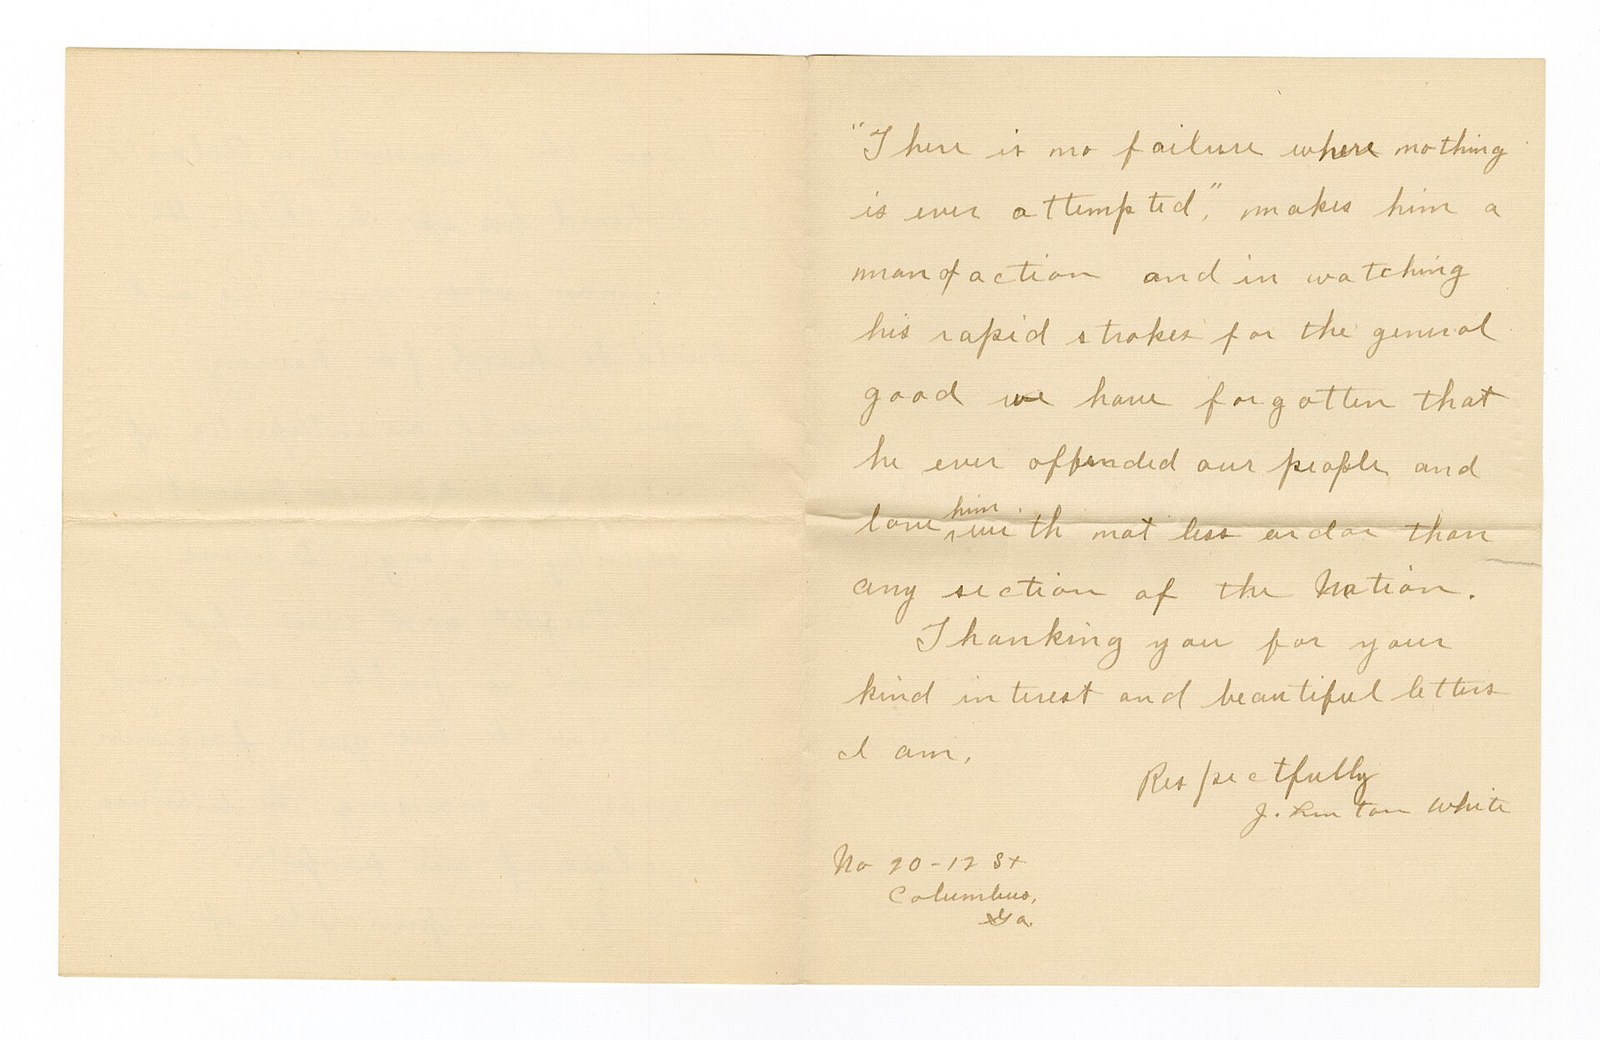 "There is no failure where nothing
is ever attempted," makes him a
man of action and in watching
his rapid strokes for the general
good we have forgotten that
he ever offended our people and
love him with not less ardor than
any section of the Nation.
Thanking you for your
kind interest and beautiful letters
I am,
Respectfully
J. White
No 20-12 St
Columbus,
Ga.